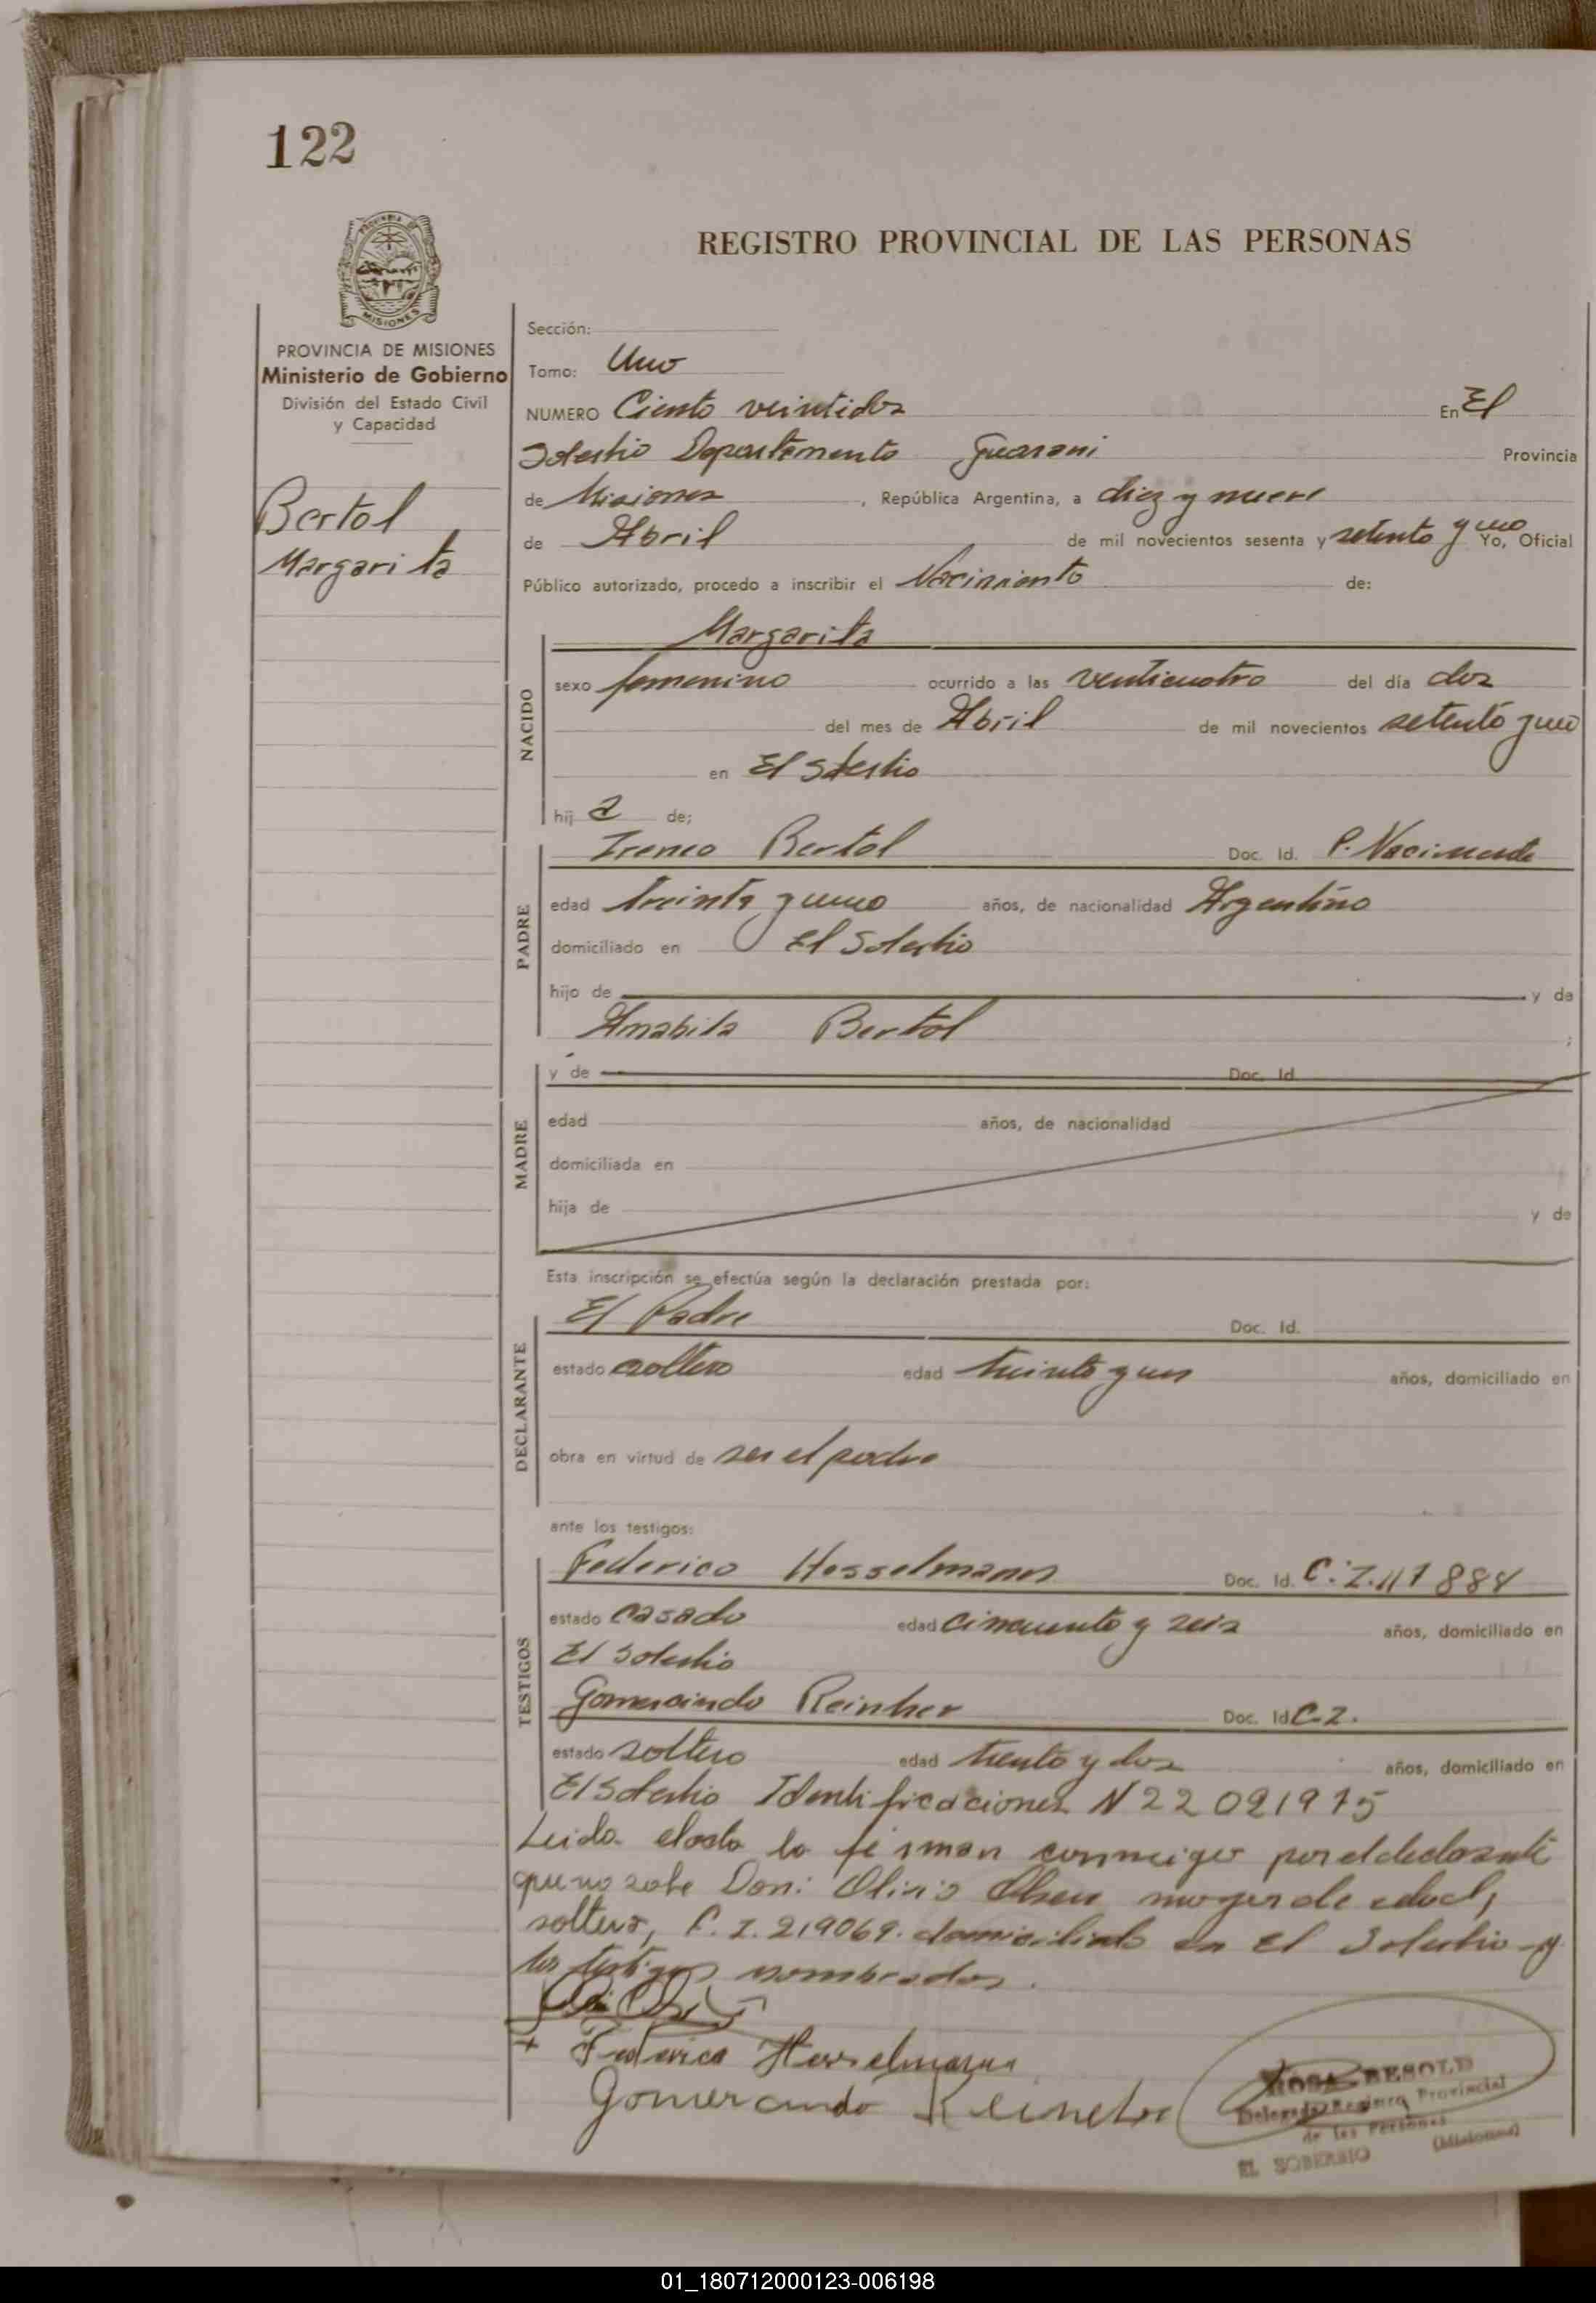 122
PROVINCIA DE MISIONES
MISIONES
REGISTRO PROVINCIAL DE LAS PERSONAS
PROVINCIA DE MISIONES
Ministerio de Gobierno
División del Estado Civil
y Capacidad
Bertol
Margarita
Sección:
Tomo: Uno
NUMERO Ciento veintidos En El
Soberbio Departamento Guarani Provincia
de Misiones, República Argentina, a diez y nueve
de Abril de mil novecientos sesenta y setenta y uno Yo, Oficial
Público autorizado, procedo a inscribir el Nacimiento de:
NACIDO
Margarita
sexo femenino ocurrido a las venticuatro del día dos
del mes de Abril de mil novecientos setenta y uno
en El Soberbio
hij a de;
PADRE
Ireneo Bertol Doc. Id. P. Nacimiento
edad treinta y uno años, de nacionalidad Argentino
domiciliado en El Soberbio
hijo de y de
Amabila Bertol ;
MADRE
y de Doc. Id.
edad años, de nacionalidad
domiciliada en
hija de y de
Esta inscripción se efectúa según la declaración prestada por:
DECLARANTE
El Padre Doc. Id.
estado soltero edad treinta y un años, domiciliado en
obra en virtud de ser el padre
ante los testigos:
TESTIGOS
Federico Hosselmann Doc. Id. C.I. 117884
estado casado edad cincuenta y seis años, domiciliado en
El Soberbio
Gomercindo Reinher Doc. Id C.I.
estado soltero edad trenta y dos años, domiciliado en
El Soberbio Identificaciones N 22 021975
Leida el acta la firman conmigo por el declarante
que no sabe Don: Olirio mayor de edad,
soltero, C.I. 219069. domiciliado en El Soberbio y
los testigos nombrados.
+ Federico Hosselmann
Gomercindo Reinher
ROSA BESOLD
Delegada Registro Provincial
de las Personas
EL SOBERBIO (Misiones)
01_180712000123-006198